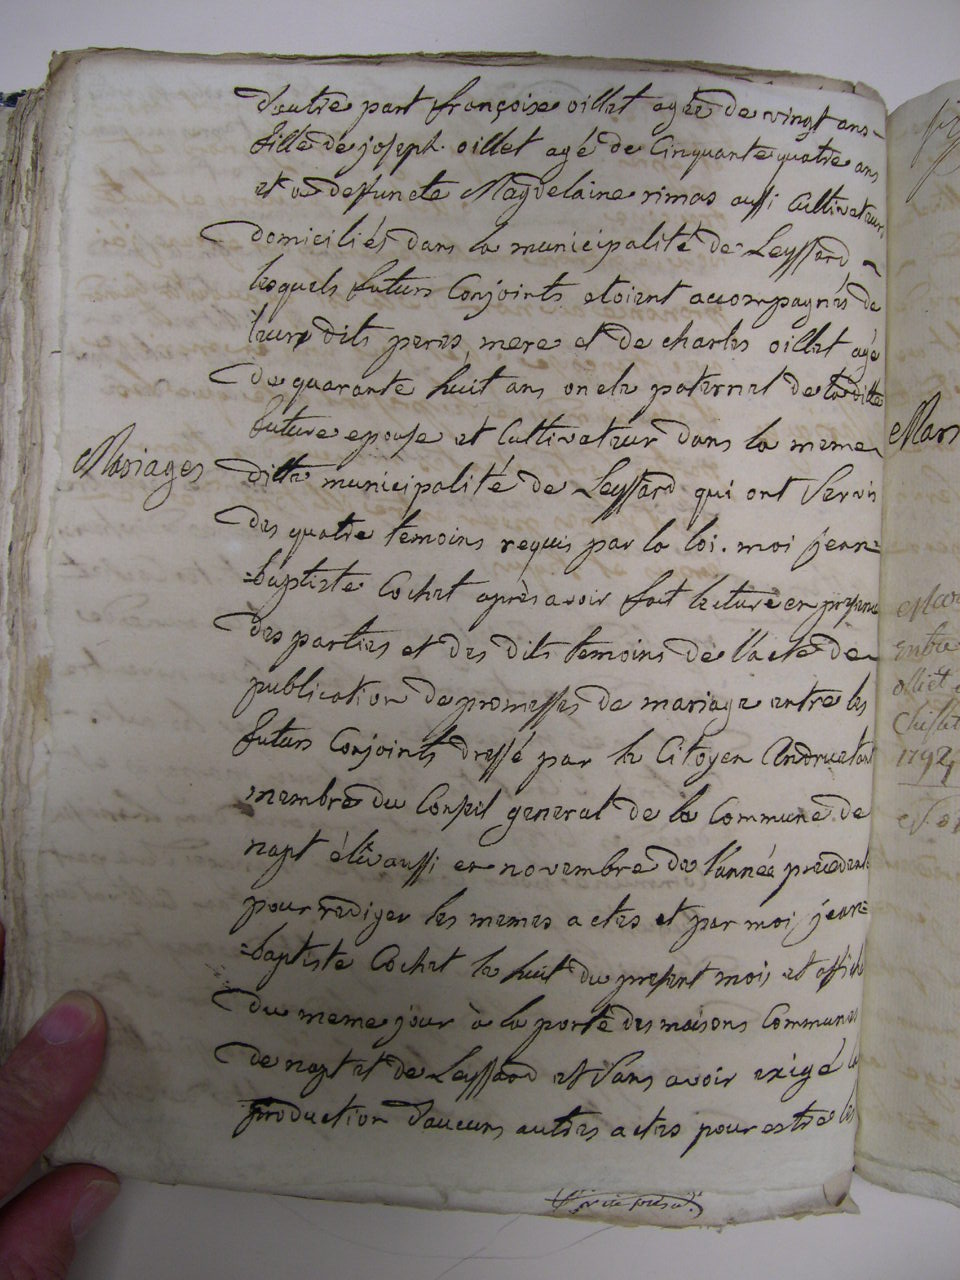 d'autre part françoise oillet agée de vingt ans
fille de joseph oillet agé de Cinquante quatre ans
et de deffuncte Magdelaine rimas aussi Cultivateurs
domiciliés dans la municipalité de Leyssard
lesquels futurs Conjoints etoient accompagnés de
leurs dits peres, mere et de charles oillet agé
de quarante huit ans oncle paternel de la ditte
future epouse et Cultivateur dans la meme
Mariages
ditte municipalité de Leyssard qui ont Servis
des quatre temoins requis par la loi. moi jean=
=baptiste Cochet après avoir fait lecture en presence
des parties et des dits temoins de l'acte de
publication de promesses de mariage entre les
futurs Conjoints dressé par le Citoyen
membre du Conseil general de la Commune de
napt élû aussi en novembre de l'année precedente
pour rediger les memes actes et par moi jean=
=baptiste Cochet le huit du present mois et affiché
du meme jour à la porte des maisons Communes
de napt et de Leyssard et Sans avoir exigé la
production d'aucuns autres actes pour estre les
Mars
Entre
olliet
1792